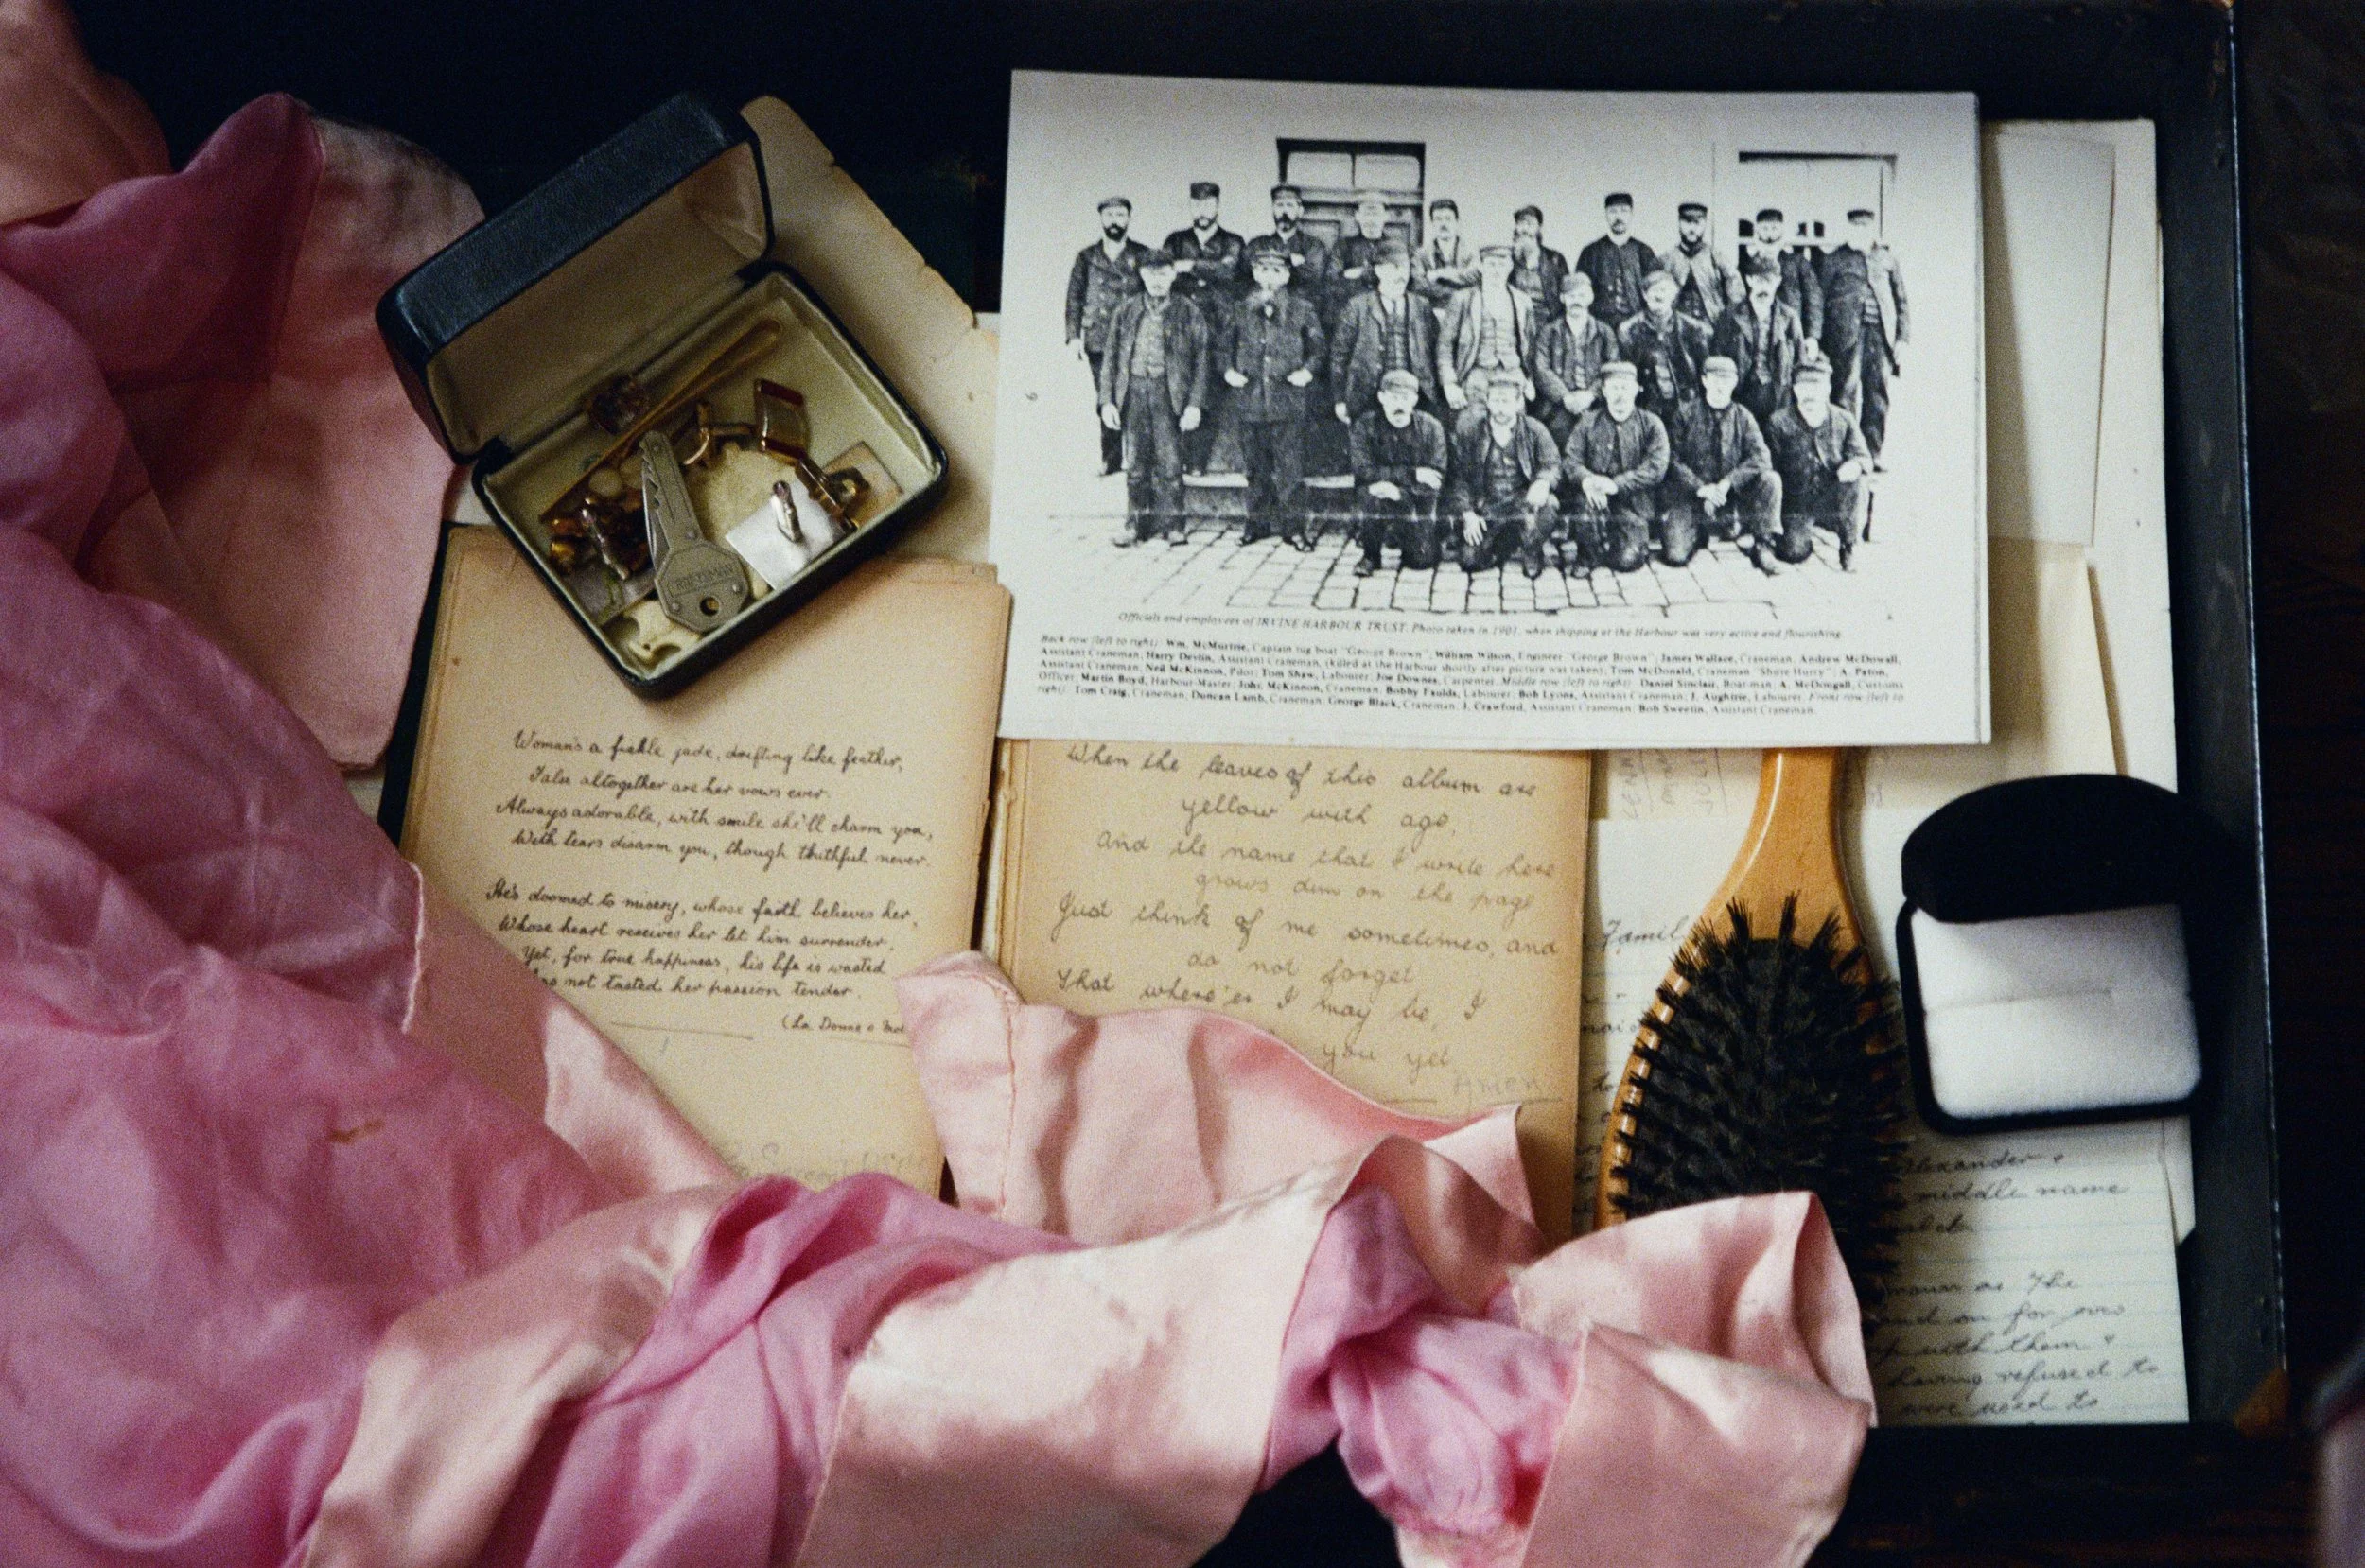 Officials and employees of IRVINE HARBOUR TRUST. Photo taken in 1901, when shipping at the Harbour was very active and flourishing.
Back row (left to right): Wm. McMurtrie, Captain tug boat "George Brown"; William Wilson, Engineer "George Brown"; James Wallace, Craneman; Andrew McDowall,
Assistant Craneman; Harry Devlin, Assistant Craneman, (killed at the Harbour shortly after picture was taken); Tom McDonald, Craneman "Shure Hurry"; A. Paton,
Assistant Craneman; Ned McKinnon, Pilot; Tom Shaw, Labourer; Joe Downes, Carpenter. Middle row (left to right): Daniel Sinclair, Boatman; A. McDougall, Customs
Officer; Martin Boyd, Harbour-Master; John McKinnon, Craneman; Bobby Faulds, Labourer; Bob Lyons, Assistant Craneman; J. Aughtrie, Labourer. Front row (left to
right): Tom Craig, Craneman; Duncan Lamb, Craneman; George Black, Craneman; J. Crawford, Assistant Craneman; Bob Sweetin, Assistant Craneman.
Woman's a fickle jade, drifting like feather,
False altogether are her vows ever.
Always adorable, with smile she'll charm you,
With tears disarm you, though thuthful never.
He's doomed to misery, whose faith believes her,
Whose heart receives her let him surrender,
Yet, for true happiness, his life is wasted
not tasted her passion tender.
(La Donne e
When the leaves of this album are
yellow with age,
And the name that I write here
grows dim on the page
Just think of me sometimes, and
do not forget
That where'er I may be, I
you yet
Amen
Famil
Alexander
middle name
as the
and on for
with them
having refused to
were used to